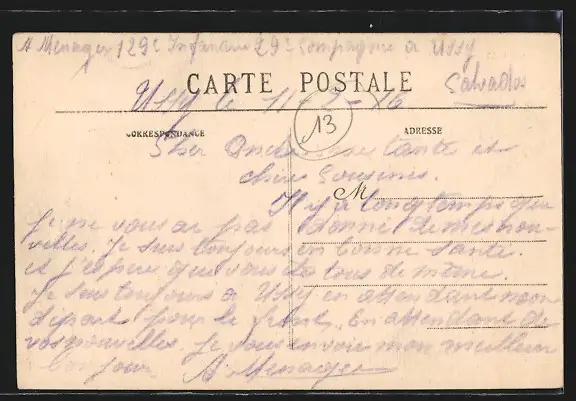 A Menager 129e Infanterie 29e Compagnie a Ussy
Calvados
CARTE POSTALE
Ussy le 11-2-16
13
CORRESPONDANCE
ADRESSE
Cher Oncle chere tante et
chers Cousins.
M
Il y a longtemps que
je ne vous ai pas donne de mes nou-
velles. Je suis toujours en bonne sante.
et j'espere que vous tous de meme.
Je suis toujours a Ussy en attendant mon
depart pour le front, En attendant de
vos nouvelles. Je vous envoie mon meilleur
bonjour A Menager